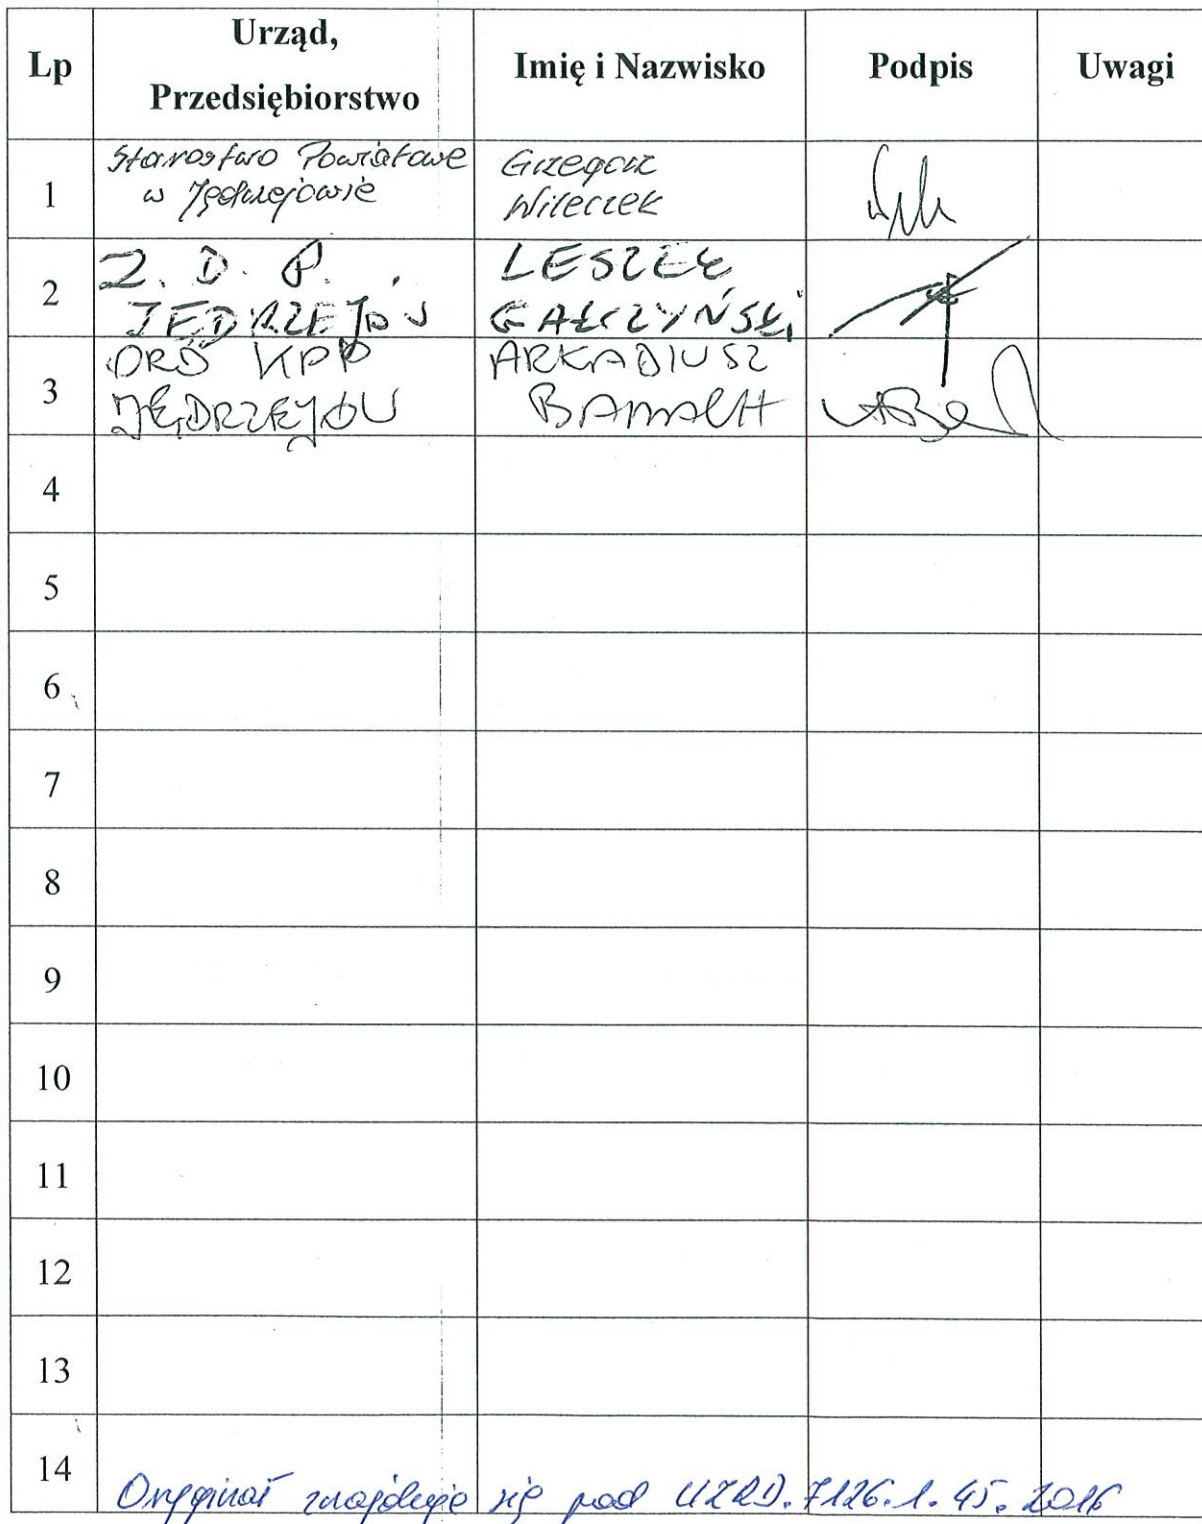 Lp
Urząd,
Przedsiębiorstwo
Imię i Nazwisko
Podpis
Uwagi
1
Starostwo Powiatowe
w Jędrzejowie
Grzegorz
Wileczek
2
Z. D. P.
JĘDRZEJÓW
LESZEK
GAŁCZYŃSKI
3
KPP
JĘDRZEJÓW
ARKADIUSZ
4
5
6
7
8
9
10
11
12
13
14
Oryginał znajduje się pod 7126.1.45.2016